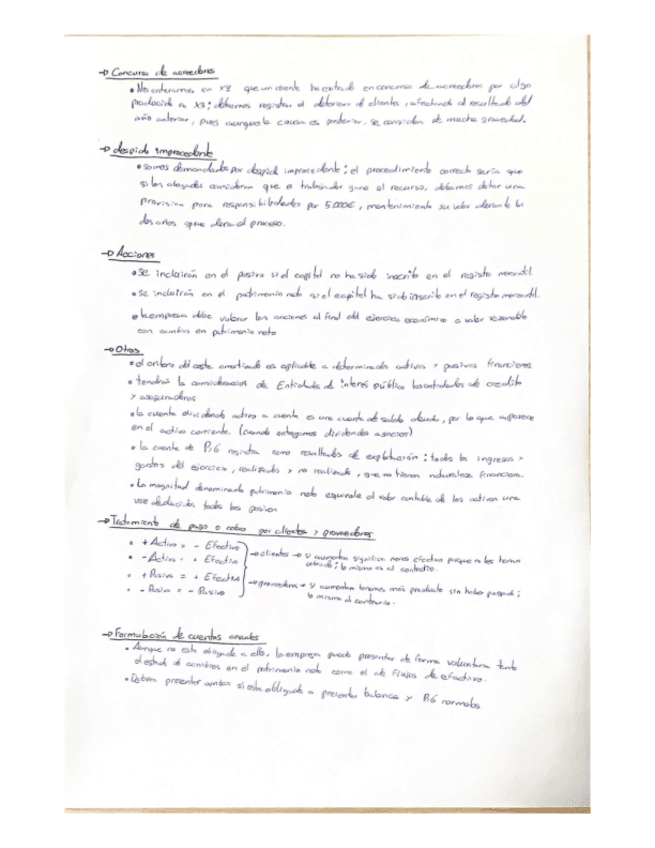 → Concurso de acreedores
• Nos enteramos en X4 que un cliente ha entrado en concurso de acreedores por algo
producido en X3; debemos registrar el deterioro de clientes, afectando al resultado del
año anterior, pues aunque la causa es posterior, se considera de mucha gravedad.
→ despido improcedente
• somos demandados por despido improcedente; el procedimiento correcto sería que
si los abogados consideran que el trabajador gane el recurso, debemos dotar una
provision para responsabilidades por 5.000€, manteniendo su valor durante los
dos años que dura el proceso.
→ Acciones
• Se incluirán en el pasivo si el capital no ha sido inscrito en el registro mercantil.
• Se incluirán en el patrimonio neto si el capital ha sido inscrito en el registro mercantil.
• la empresa debe valorar las acciones al final del ejercicio económico a valor razonable
con cambios en patrimonio neto
→ Otros
• el criterio del coste amortizado es aplicable a determinados activos y pasivos financieros
• tendrán la consideración de Entidades de interés público las entidades de credito
y aseguradoras
• la cuenta dividendo activo a cuenta es una cuenta de saldo deudor, por lo que aparece
en el activo corriente. (cuando entregamos dividendos a socios)
• la cuenta de PyG registra como resultados de explotación; todos los ingresos y
gastos del ejercicio, realizados y no realizados, que no tienen naturaleza financiera.
• La magnitud denominada patrimonio neto equivale al valor contable de los activos una
vez deducidos todos los pasivos
→ Tratamiento de pago o cobro por clientes y proveedores
• + Activo = - Efectivo
• - Activo = + Efectivo
• + Pasivo = + Efectivo
• - Pasivo = - Pasivo
→ clientes → si aumentan significa menos efectivo porque no les hemos
cobrado; lo mismo es al contrario.
→ proveedores → si aumentan tenemos más producto sin haber pagado;
lo mismo al contrario.
→ Formulación de cuentas anuales
• Aunque no este obligada a ello, la empresa puede presentar de forma voluntaria tanto
el estado de cambios en el patrimonio neto como el de flujos de efectivo.
• Deben presentar ambos si esta obligada a presentar balance y PyG normales